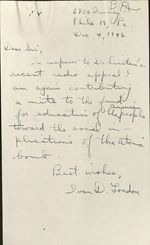 Phila 19, Pa.
Dec 4, 1946
Dear Sir,
In response to Dr Einstein's
recent radio appeal I
am again contributing
a mite to the fund
for education of the people
toward the social im-
plications of the atomic
bomb.
Best wishes,
Ivan D. London